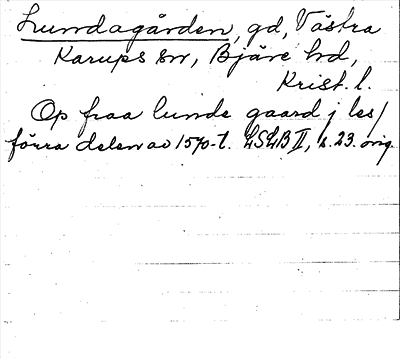 Lundagården, gd, Västra
Karups sn, Bjäre hd,
Krist. l.
Op fraa lunde gaard j les/
förra delen av 1570-t. LSLB II, s. 23. orig.